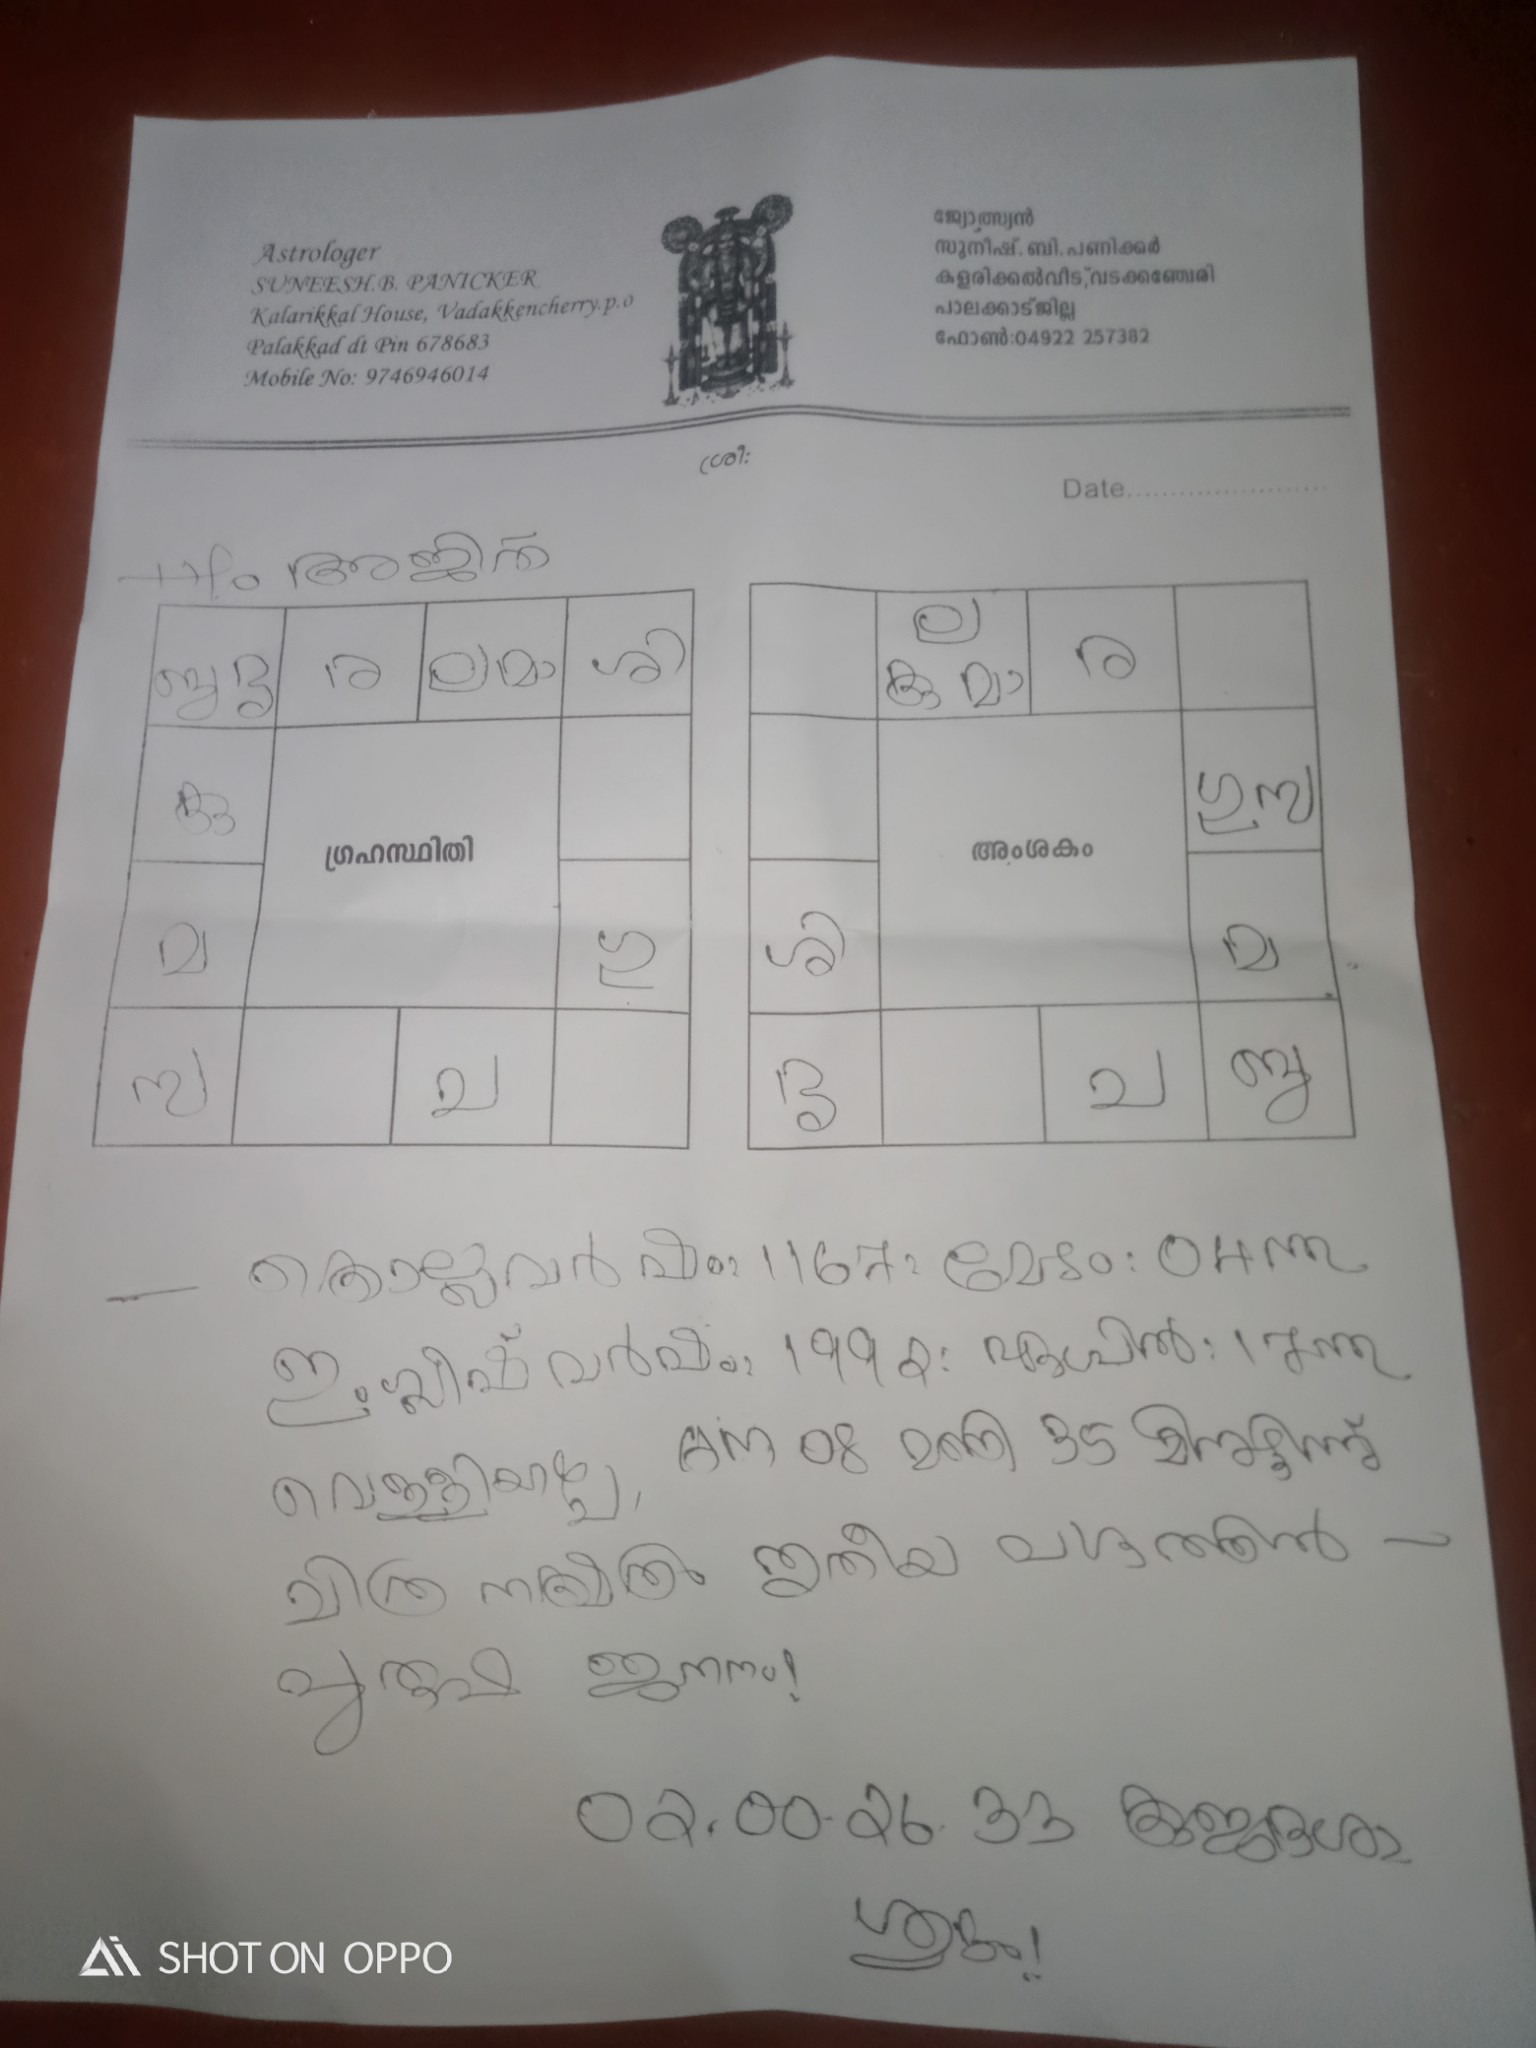 Astrologer
SUNEESH.B. PANICKER
Kalarikkal House, Vadakkencherry.p.o
Palakkad dt Pin 678683
Mobile No: 9746946014
ജ്യോത്സ്യൻ
സുനീഷ്.ബി.പണിക്കർ
കളരിക്കൽവീട്,വടക്കഞ്ചേരി
പാലക്കാട്ജില്ല
ഫോൺ:04922 257382
ശ്രീ:
Date........................
അജിത്
ബു ശു ര ല മാ ശി
കു
മ ഗു
സ ച
ഗ്രഹസ്ഥിതി
ല
കു മാ ര
ഗു സ
ശി മ
ച ബു
അംശകം
കൊല്ലവർഷം: 1167: മേടം: 04ന്നു
ഇംഗ്ലീഷ് വർഷം: 1992: ഏപ്രിൽ: 17ന്നു
വെള്ളിയാഴ്ച, AM 08 മണി 35 മിനുട്ടിന്ന്
ചിത്ര നക്ഷത്രം തൃതീയ പാദത്തിൽ –
പുരുഷ ജനനം!
02.00.26.33 കുജദശാ
ശുഭം!
SHOT ON OPPO